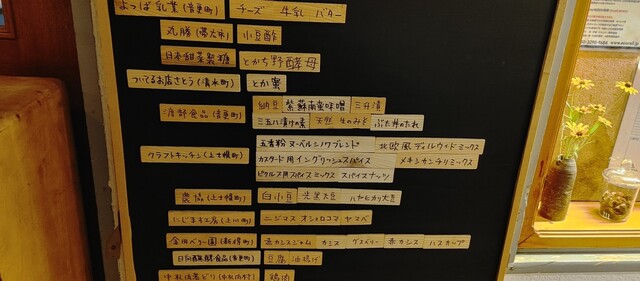 よつば乳業(音更町) チーズ 牛乳 バター
丸勝(帯広市) 小豆酢
日本甜菜製糖 とかち野酵母
ついてるお店さとう(清水町) とか蜜
渡部食品(音更町) 納豆 紫蘇南蛮味噌 三升漬
三五八漬けの素 天然 生のみそ ぶた丼のたれ
クラフトキッチン(上士幌町) 五香粉 ヌーベルシノワブレンド 北欧風ディルウィドミックス
カスタード用イングリーシュスパイス メキシカンチリミックス
ピクルス用スパイスミックス スパイスナッツ
農協(上士幌町) 白小豆 光黒大豆 ハヤヒカリ大豆
にじます工房(上川町) ニジマス オショロコマ ヤマベ
金田ベリー園(新得町) 赤カシスジャム カシス グズベリー 赤カシス ハスカップ
日向醗酵食品(音更町) 豆腐 油揚げ
中札内若どり(中札内村) 鶏肉